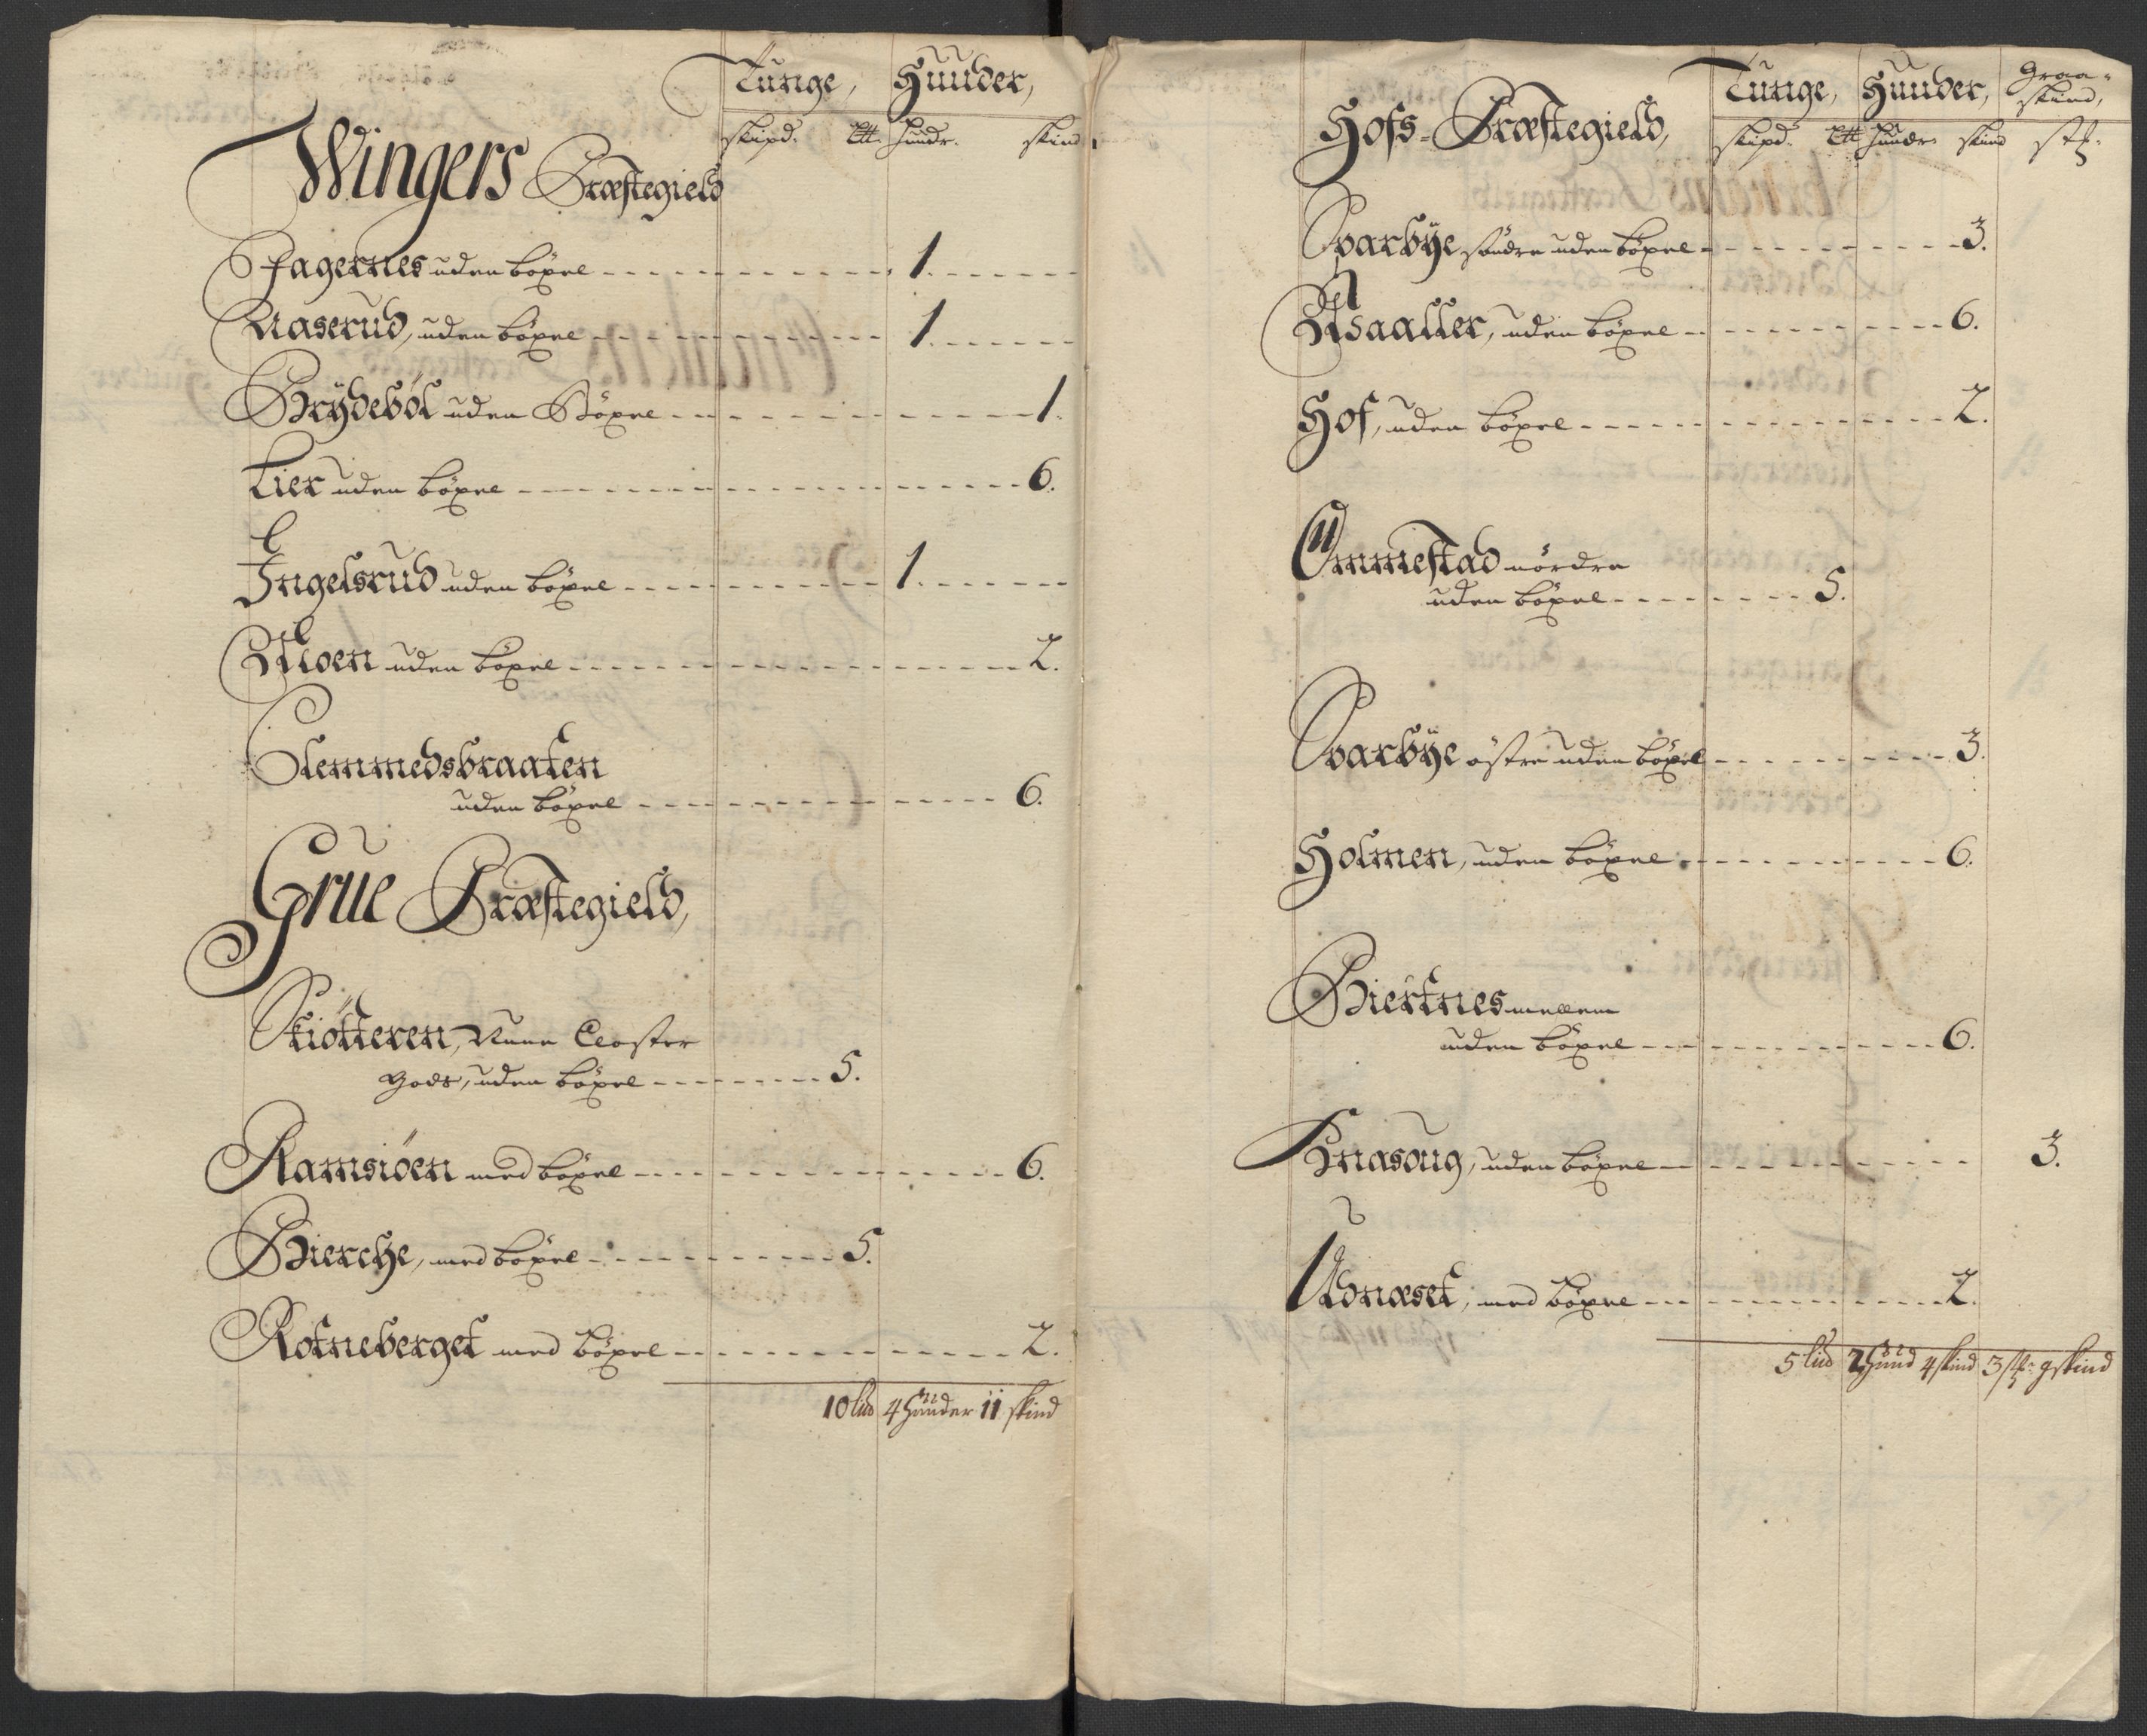 Tunge, Huuder,
skipd. Ltt. Hundr. skind
Wingers Præstegield
Fagernes uden böxel 1.
Naserud, uden böxel 1.
Brÿdeböl uden Böxel 1.
Lier uden böxel 6.
Ingelsrud uden böxel 1.
Moen uden böxel 2.
Clemmedsbraaten
uden böxel 6.
Grue Præstegield,
Skiötteren, Nunne Closter
Gods, uden böxel 5.
Ramsiöen med böxel 6.
Bierche, med böxel 5.
Rotneberget med böxel 2.
10 lud 4 Huuder 11 skind
Tunge, Huuder, Graa-
skind,
Hofs-Præstegield,
skipd. Ltt Hundr. skind stk.
Qvarbÿe söndre uden böxel 3.
Aasaaller, uden böxel 6.
Hof, uden böxel 2.
Ommestad nördre
uden böxel 5.
Qvarbÿe östre uden böxel 3.
Holmen, uden böxel 6.
Biertnes mellem
uden böxel 6.
Knasoug, uden böxel 3.
Udnæset, med böxel 2.
5 lud 2 Huud 4 skind 3 stk. gskind